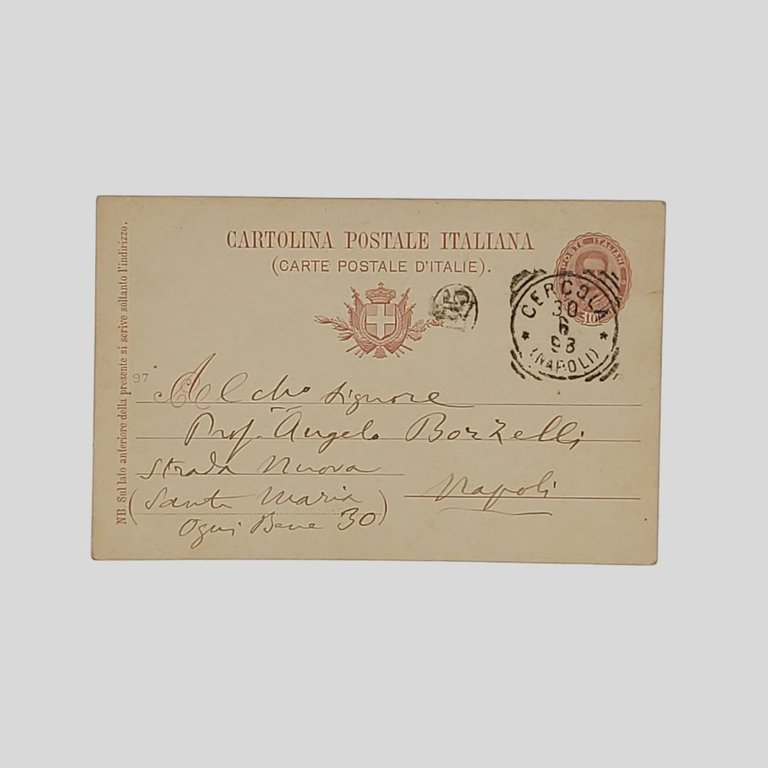 CARTOLINA POSTALE ITALIANA
(CARTE POSTALE D'ITALIE).
POSTE ITALIANE
10
CERCOLA
30
6
98
* (NAPOLI) *
NB Sul lato anteriore della presente si scrive soltanto l'indirizzo.
97
Al Ch.o Signore
Prof. Angelo Borzelli
Strada Nuova
(Santa Maria
Ogni Bene 30)
Napoli